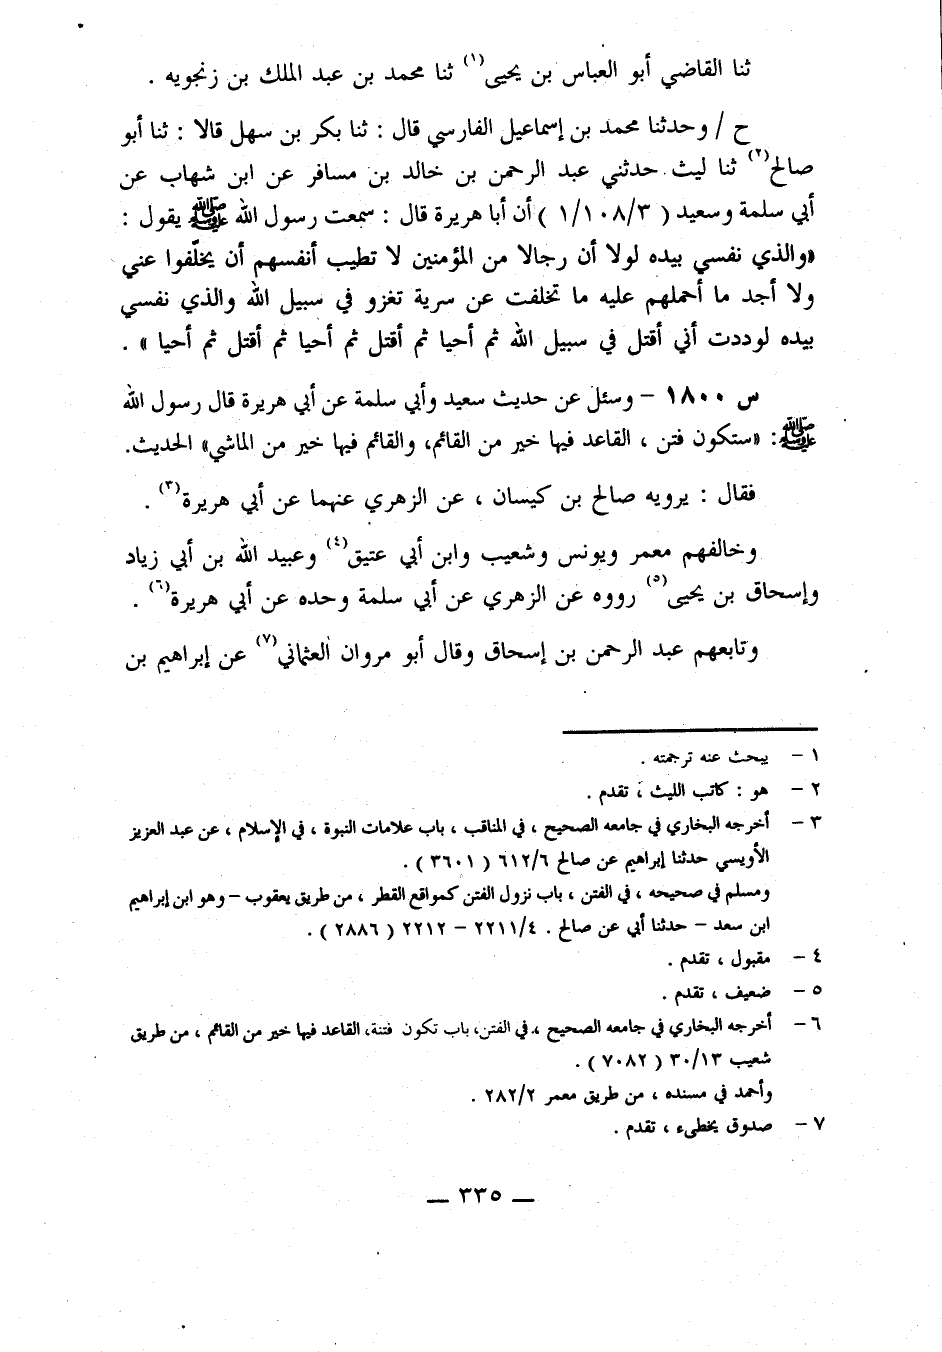 ثنا القاضي أبو العباس بن يحيى(١) ثنا محمد بن عبد الملك بن زنجويه .
ح / وحدثنا محمد بن إسماعيل الفارسي قال : ثنا بكر بن سهل قالا : ثنا أبو
صالح(٢) ثنا ليث حدثني عبد الرحمن بن خالد بن مسافر عن ابن شهاب عن
أبي سلمة وسعيد ( ١/١٠٨/٣ ) أن أبا هريرة قال : سمعت رسول الله ﷺ يقول :
«والذي نفسي بيده لولا أن رجالا من المؤمنين لا تطيب أنفسهم أن يخلّفوا عني
ولا أجد ما أحملهم عليه ما تخلفت عن سرية تغزو في سبيل الله والذي نفسي
بيده لوددت أني أقتل في سبيل الله ثم أحيا ثم أقتل ثم أحيا ثم أقتل ثم أحيا » .
س ١٨٠٠ – وسئل عن حديث سعيد وأبي سلمة عن أبي هريرة قال رسول الله
ﷺ: «ستكون فتن ، القاعد فيها خير من القائم، والقائم فيها خير من الماشي» الحديث.
فقال : يرويه صالح بن كيسان ، عن الزهري عنهما عن أبي هريرة(٣) .
وخالفهم معمر ويونس وشعيب وابن أبي عتيق(٤) وعبيد الله بن أبي زياد
وإسحاق بن يحيى(٥) رووه عن الزهري عن أبي سلمة وحده عن أبي هريرة(٦) .
وتابعهم عبد الرحمن بن إسحاق وقال أبو مروان العثماني(٧) عن إبراهيم بن
١ – يبحث عنه ترجمته .
٢ – هو : كاتب الليث ، تقدم .
٣ – أخرجه البخاري في جامعه الصحيح ، في المناقب ، باب علامات النبوة ، في الإسلام ، عن عبد العزيز
الأويسي حدثنا إبراهيم عن صالح ٦١٢/٦ ( ٣٦٠١ ) .
ومسلم في صحيحه ، في الفتن ، باب نزول الفتن كمواقع القطر ، من طريق يعقوب – وهو ابن إبراهيم
ابن سعد – حدثنا أبي عن صالح . ٢٢١١/٤ – ٢٢١٢ ( ٢٨٨٦ ) .
٤ – مقبول ، تقدم .
٥ – ضعيف ، تقدم .
٦ – أخرجه البخاري في جامعه الصحيح ، في الفتن، باب تكون فتنة، القاعد فيها خير من القائم ، من طريق
شعيب ٣٠/١٣ ( ٧٠٨٢ ) .
وأحمد في مسنده ، من طريق معمر ٢٨٢/٢ .
٧ – صدوق يخطىء ، تقدم .
— ٣٣٥ —